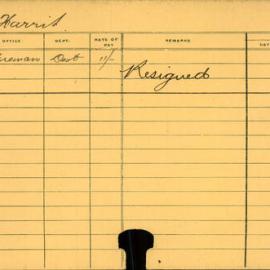 Harris.
OFFICE DEPT. RATE OF PAY REMARKS DAT
ireman 11/-
Resigned